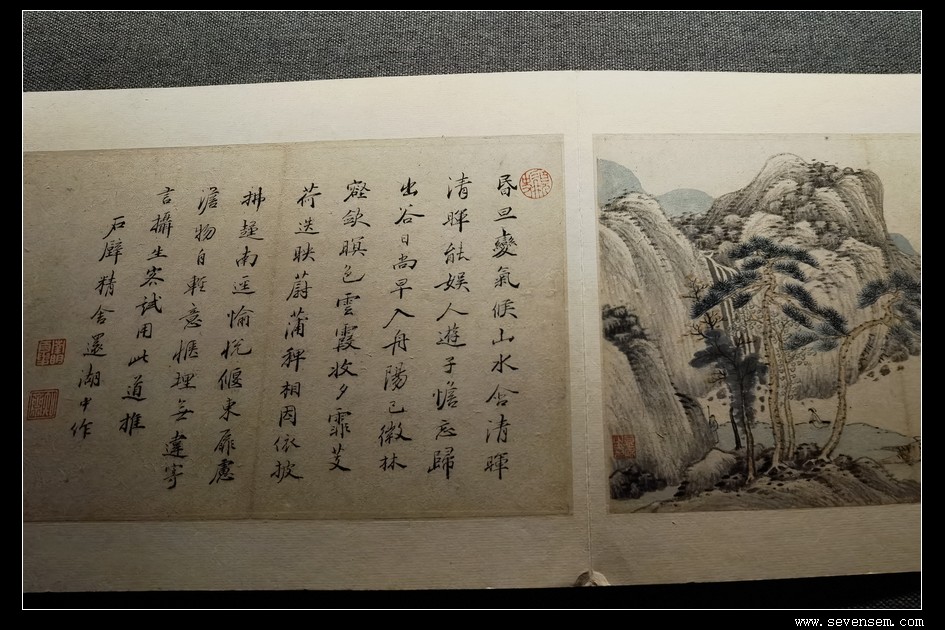 昏旦變氣候山水含清暉
清暉能娛人遊子憺忘歸
出谷日尚早入舟陽已微林
壑歛暝色雲霞收夕霏芰
荷迭映蔚蒲稗相因依披
拂趨南逕愉悅偃東扉慮
澹物自輕意愜理無違寄
言攝生客試用此道推
石壁精舍還湖中作
www.sevensem.com